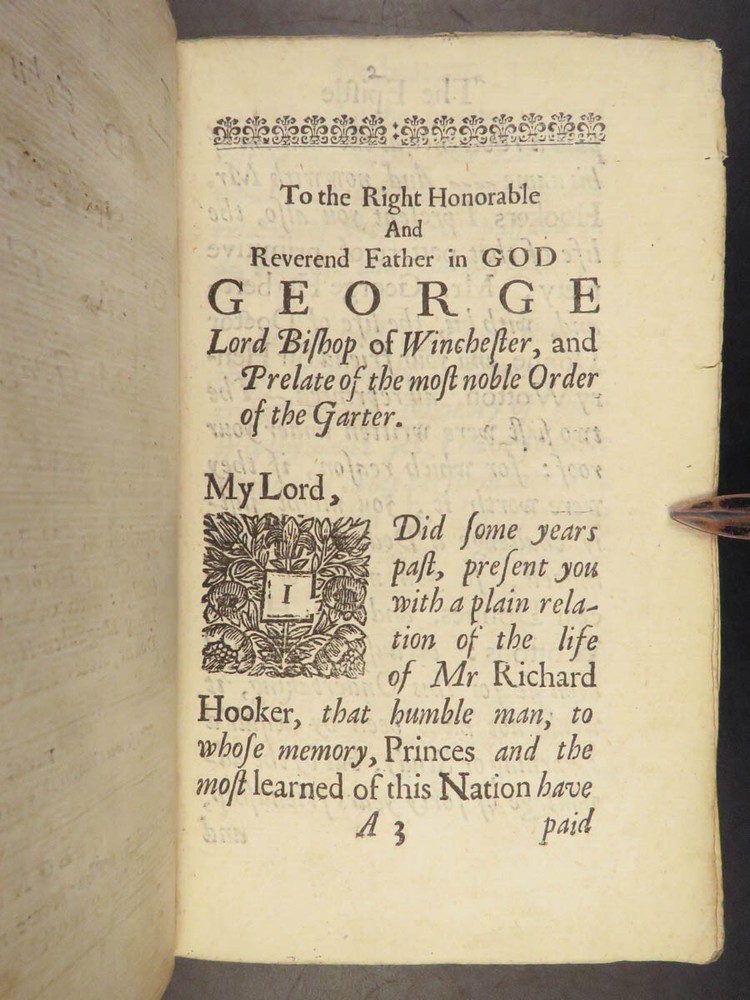 2
To the Right Honorable
And
Reverend Father in GOD
GEORGE
Lord Biſhop of Wincheſter, and
Prelate of the moſt noble Order
of the Garter.
My Lord,
I Did ſome years
paſt, preſent you
with a plain rela-
tion of the life
of Mr Richard
Hooker, that humble man, to
whoſe memory, Princes and the
moſt learned of this Nation have
A 3 paid